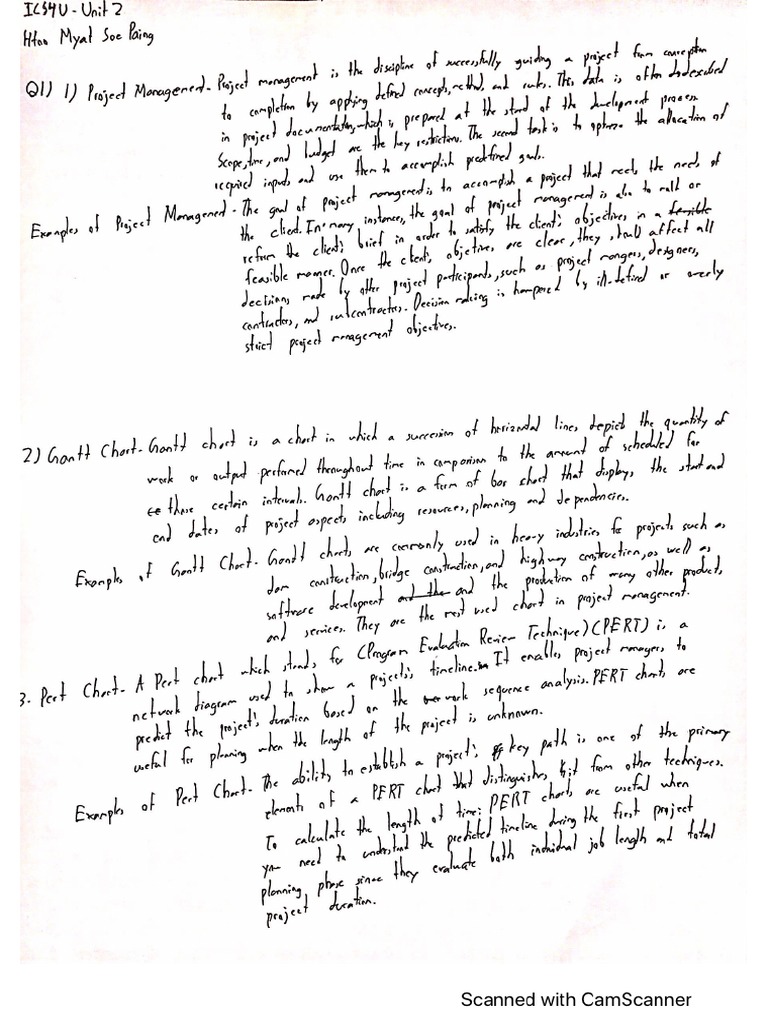 ICS4U - Unit 2
Htoo Myat Soe Paing
Q1) 1) Project Management - Project management is the discipline of successfully guiding a project from conception
to completion by applying defined concepts, method, and rules. This data is often
in project documentation, which is prepared at the start of the development process.
Scope, time, and budget are the key restrictions. The second task is to optimize the allocation of
required inputs and use them to accomplish predefined goals.
Examples of Project Management - The goal of project management is to accomplish a project that meets the needs of
the client. In many instances, the goal of project management is also to or
reform the client's brief in order to satisfy the client's objectives in a feasible
feasible manner. Once the client's objectives are clear, they should affect all
decisions made by other project participants, such as project mangers, designers,
contracters, and subcontractors. Decision making is hampered by ill-defined or overly
strict project management objectives.
2) Gantt Chart - Gantt chart is a chart in which a succession of horizondal lines depict the quantity of
work or output perfomed throughout time in comparison to the amount of scheduled for
those certain interval. Gantt chart is a form of bar chart that displays the start and
end dates of project aspects including resources, planning and dependencies.
Examples of Gantt Chart - Gantt charts are commonly used in heavy industries for projects such as
dam construction, bridge construction, and highway construction, as well as
software development and the and the production of many other products
and services. They are the most used chart in project management.
3. Pert Chart - A Pert chart which stands for (Program Evaluation Review Technique) (PERT) is a
network diagram used to show a project's timeline. It enables project managers to
predict the project's duration based on the work sequence analysis. PERT charts are
useful for planning when the length of the project is unknown.
Examples of Pert Chart - The ability to establish a project's key path is one of the primary
elements of a PERT chart that distinguishes it from other techniques.
To calculate the length of time: PERT charts are useful when
you need to understand the predicted timeline during the first project
planning phase since they evaluate both individual job length and total
project duration.
Scanned with CamScanner